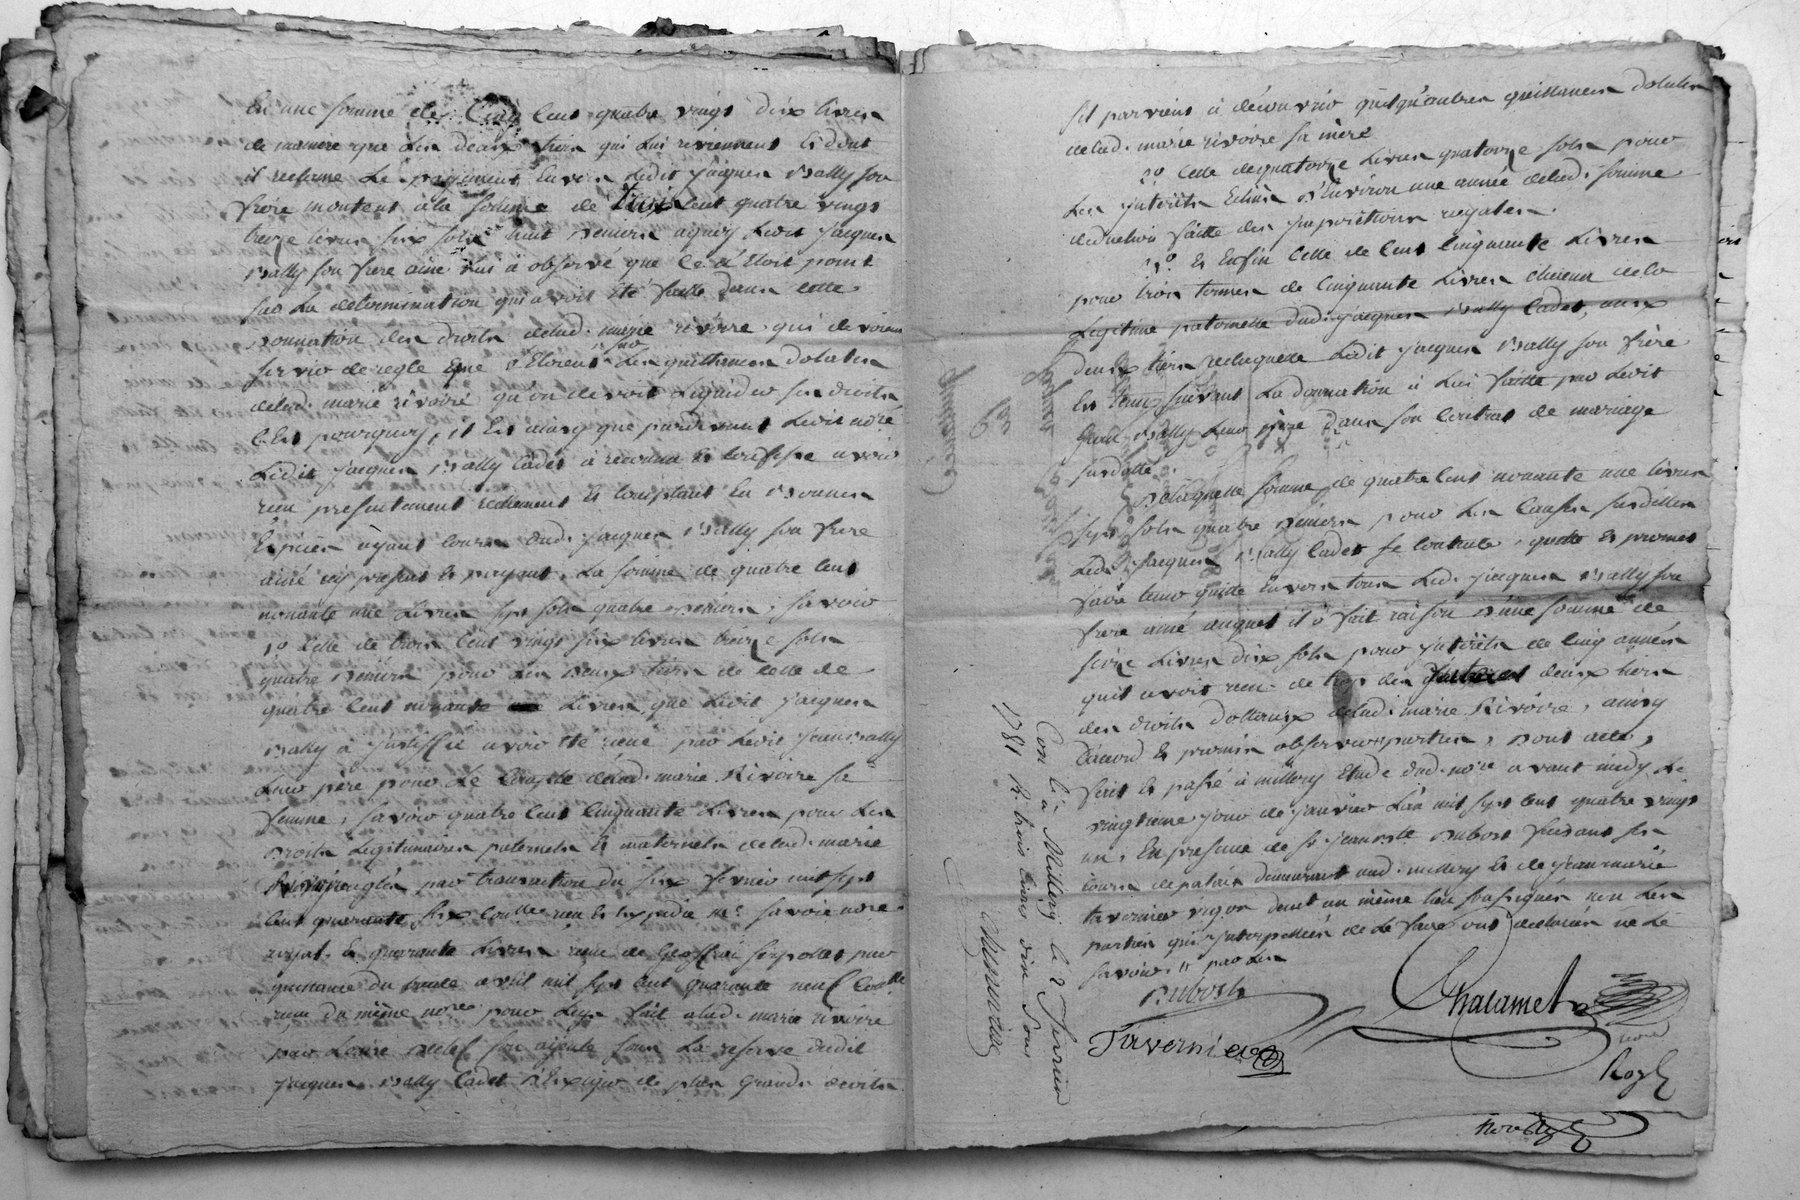 En une somme de Cinq Cent quatre vingt dix livres
de maniere que Les deux tiers qui Lui reviennent Et dont
il reclame Le payement Envers Ledit jacques Bally son
frere montent à la somme de trois Cent quatre vingt
treize livres six sols huit deniers aquoy Ledit jacques
Bally son frere ainé lui à observé que Ce n'Etoit point
sur La determination qui avoit Eté faitte dans cette
donnation des droits delad. marie rivoire qui devoient
servir de regle que d'Etoient sur Les quittances dotales
delad. marie rivoire qu'on devoit Liquider ses droits
C'Est pourquoy, il Est ainsy que pardevant Ledit no.re
Ledit jacques Bally Cadet à reconnu Et Confesse avoir
reçu presentement reellement Et Comptant En Bonnes
Espèces ayant Cours dud. jacques Bally son frere
ainé icy present Et payant, La somme de quatre Cent
nonante une Livres sept sols quatre deniers, savoir
1.o Celle de trois Cent vingt six livres treize sols
quatre deniers pour Les deux tiers de Celle de
quatre Cent nonante Livres, que Ledit jacques
Bally à justiffié avoir été reçue par Ledit jean Bally
Leur père pour Le Compte delad. marie Rivoire sa
femme, savoir quatre Cent Cinquante Livres pour Les
Droits Legitimaires paternels Et maternels delad. marie
Rivoire reglés par transaction du six fevrier mil sept
Cent quarante six Contte. reçu Et Expedié m.e savoie no.re
royal. Et quarante Livres reçue de Geoffrai par
quittance du avril mil sept Cent quarante neuf Contte.
reçue du même no.re pour Legs fait alad. marie rivoire
par Louise sous La reserve dudit
jacques Bally Cadet D'Exiger de plus grands droits
s'il parvient à découvrir quelqu'autres quittances dotales
delad. marie rivoire sa mère
2.o Celle dequatorze Livres quatorze sols pour
Les jnterêts Echus D'Environ une année delad. somme
deduction faitte des jmpositions royales.
3.o Et Enfin Celle de Cent Cinquante Livres
pour trois termes de Cinquante Livres chacun de la
Legitime paternelle dud. jacques Bally Cadet, aux
deux tiers delaquelle Ledit jacques Bally son frère
Est tenu suivant La donnation à Lui faitte par Ledit
jean Bally Leur père dans son Contrat de mariage
susdatté.
Delaquelle somme de quatre Cent nonante une livres
sept sols quatre deniers pour Les Causes susdittes
Led. jacques Bally Cadet se Contente, quitte Et promet
faire tenir quitte Envers tous Led. jacques Bally son
frere ainé auquel il à fait raison d'une somme de
seize Livres dix sols pour jnterêts de Cinq années
qu'il avoit reçu de trop des deux tiers
des droits dottaux delad. marie Rivoire, ainsy
d'acord Et promis observer parties, Dont acte,
fait Et passé à millery Etude dud. no.re avant midy Le
vingtieme jour de janvier L'an mil sept Cent quatre vingt
un, En presence de s.r jean B.te Dubost faisant ses
cours depalais demeurant aud. millery Et de jean marie
tavernier vigon dudt un même lieu soussignés non Les
parties qui jnterpellées de Le faire ont declarées ne Le
savoir. par Les
Dubost
Tavernier
Chalamet
Con. lé a Millery le 2 fevrier
1781 R. trois livres dix sous